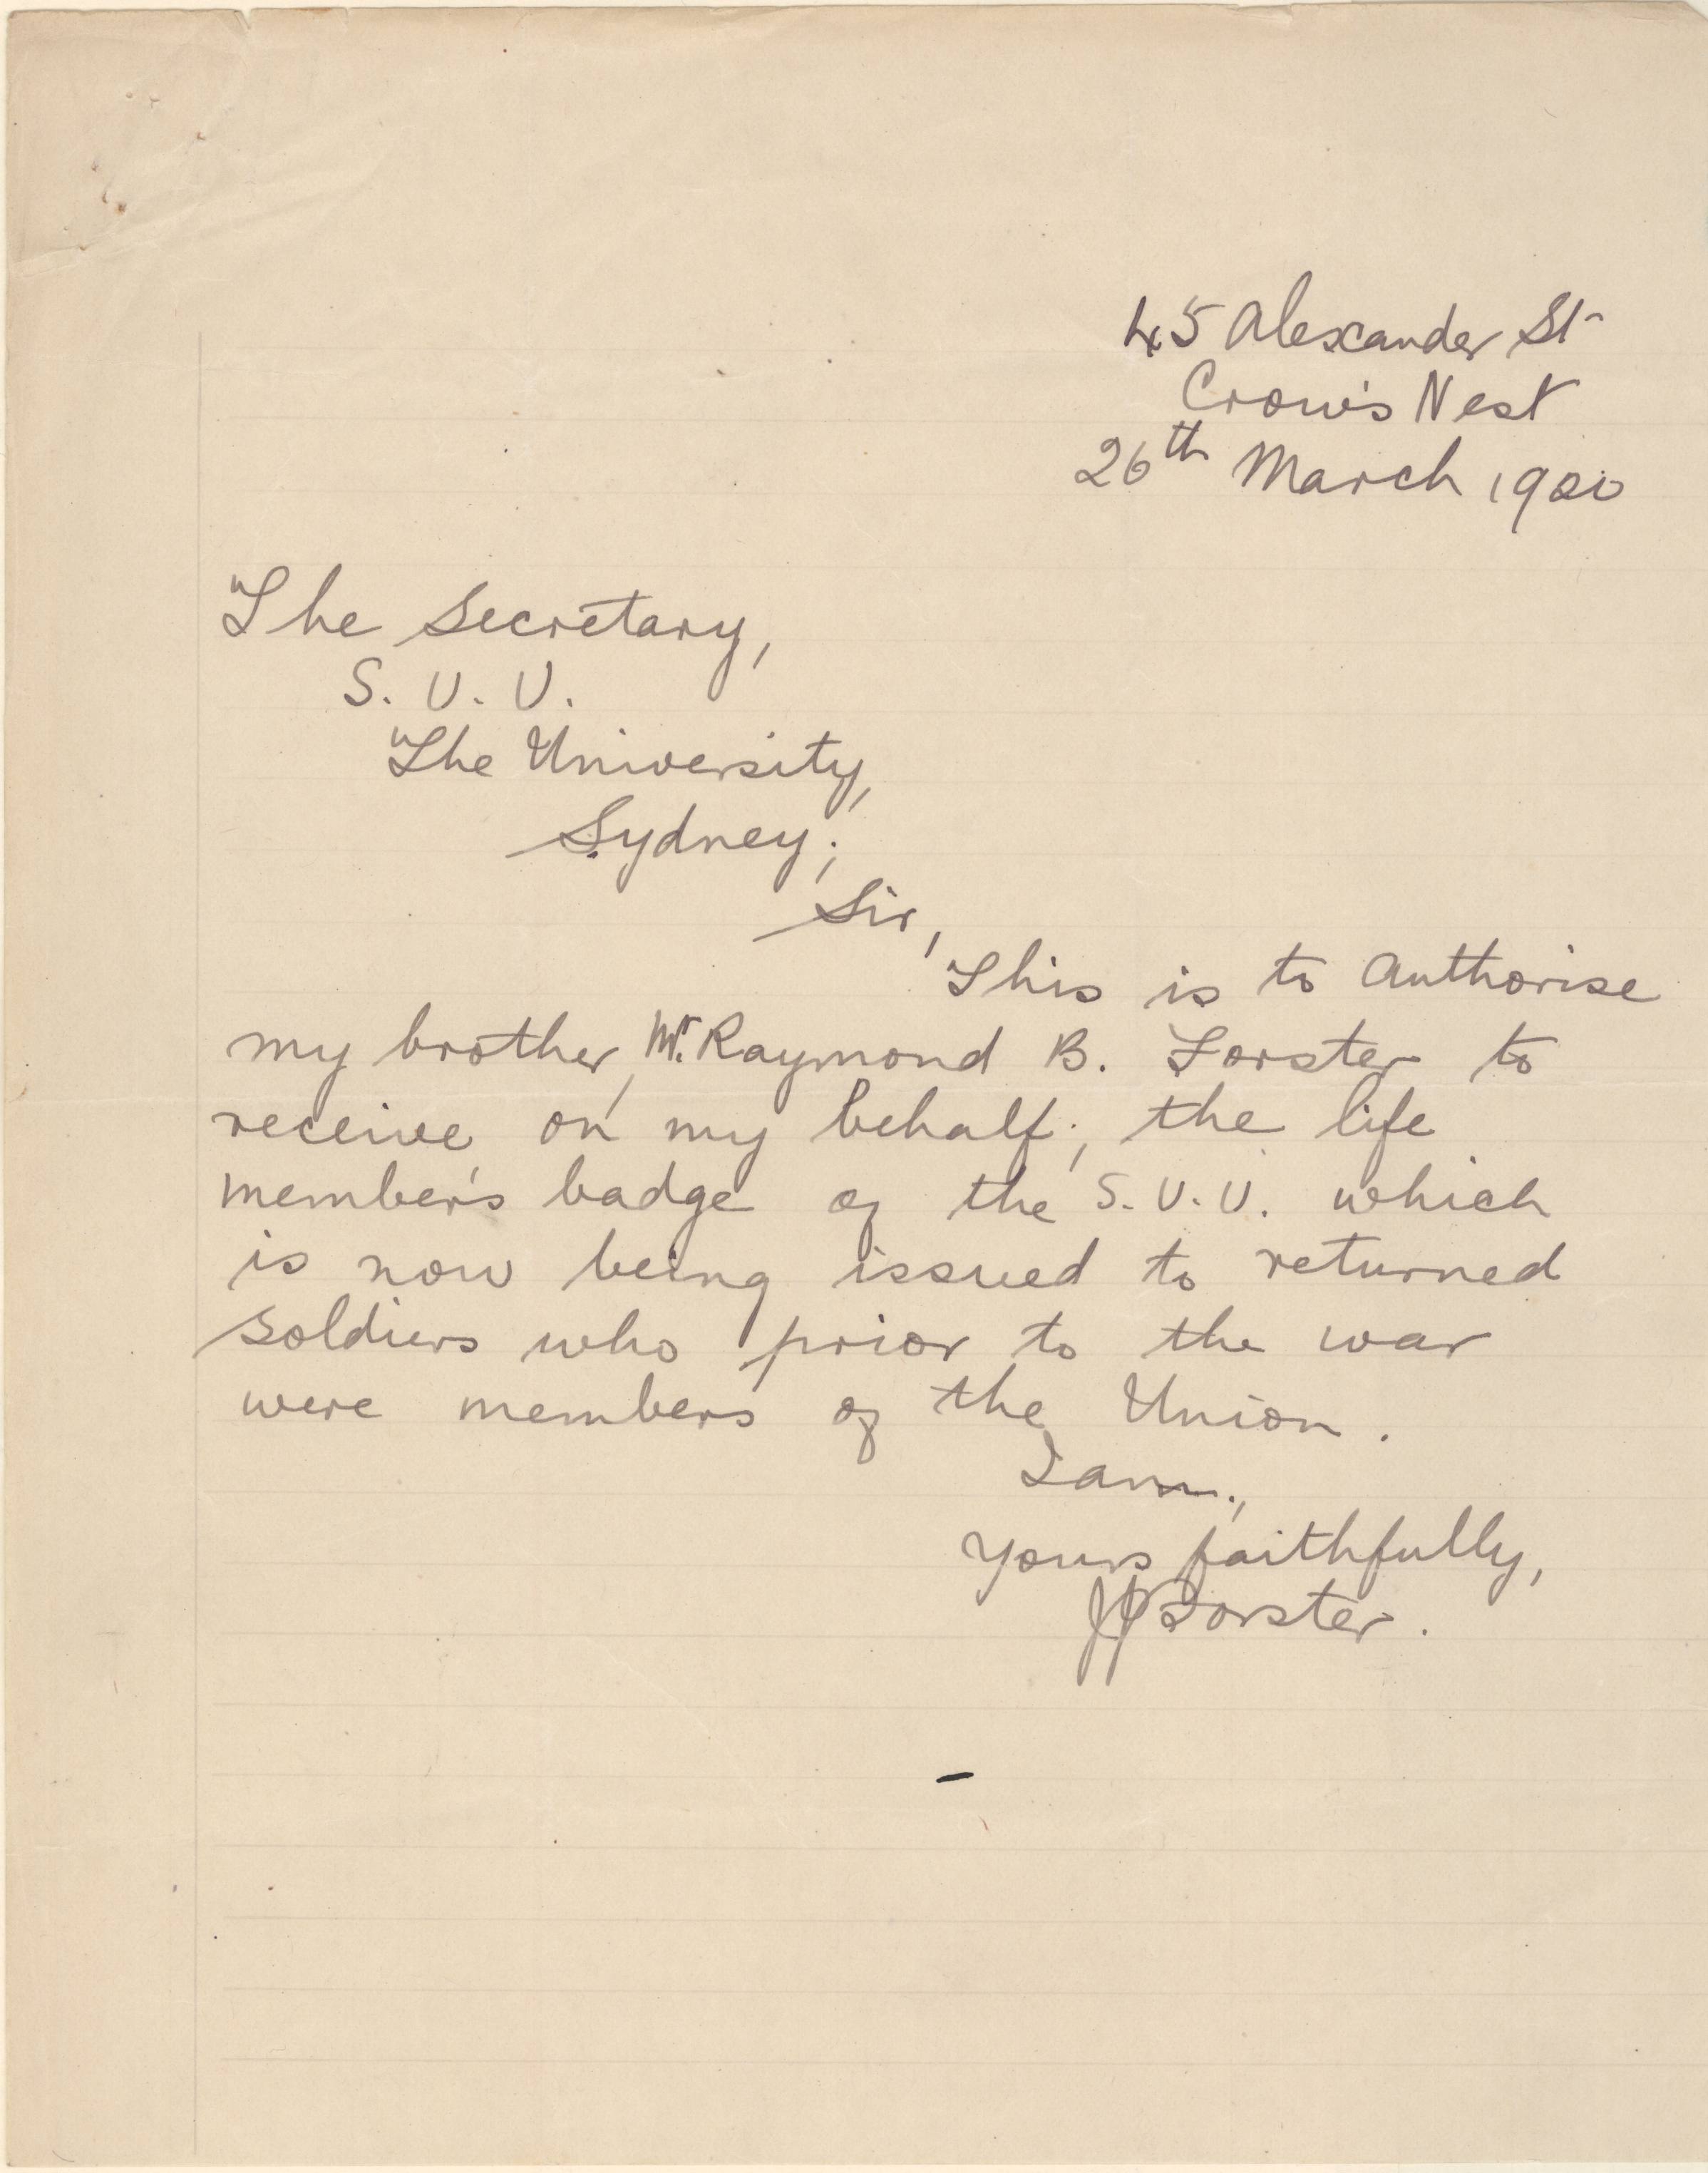 45 Alexander St
Crow's Nest
26th March 1920
The Secretary,
S. U. U.
The University,
Sydney;
Sir,
This is to Authorise
my brother, Mr. Raymond B. Forster to
receive, on my behalf, the life
member's badge of the S. U. U. which
is now being issued to returned
soldiers who prior to the war
were members of the Union.
I am,
Yours faithfully,
Forster.